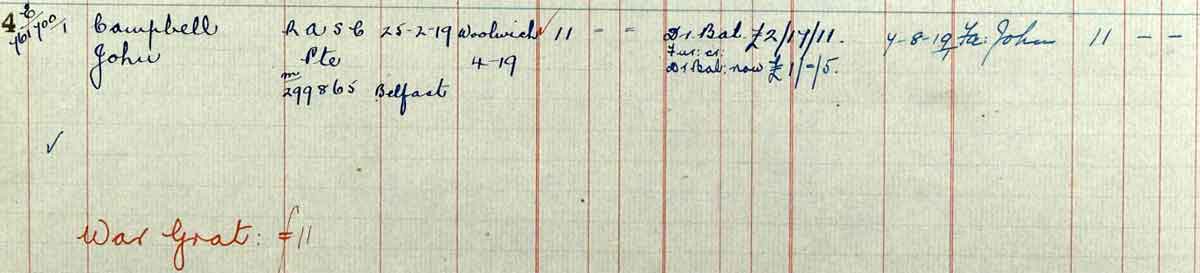 4
Campbell R A S C 25-2-19 Woolwich 11 - - Dr. Bal. £2/17/11. 4-8-19 Fa: John 11 - -
John Pte 4-19 Fur: cr:
Dr Bal: now £1/-/5.
m
299865 Belfast
✓
War Grat: £11